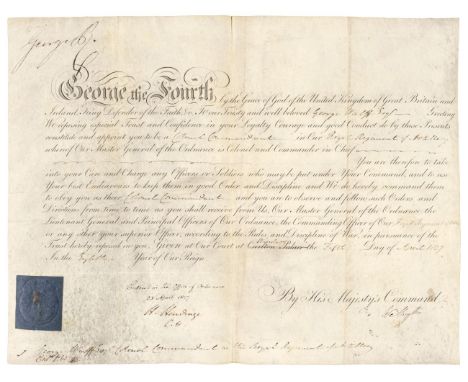 George R.
George the Fourth by the Grace of God of the United Kingdom of Great Britain and
Ireland, King Defender of the Faith, &c. To Our Trusty and well beloved George Greeting
We reposing especial Trust and Confidence in your Loyalty Courage and good Conduct do by these Presents
constitute and appoint you to be Colonel Commandant in Our Royal Regiment of Artillery
whereof Our Master General of the Ordnance is Colonel and Commander in Chief
You are therefore to take
into your Care and Charge any Officers or Soldiers who may be put under Your Command, and to use
Your best Endeavours to keep them in good Order and Discipline and We do hereby command them
to obey you as their Colonel Commandant and you are to observe and follow such Orders and
Directions from time to time as you shall receive from Us, Our Master General of the Ordnance, the
Lieutenant General and Principal Officers of Our Ordnance, the Commanding Officer of the
or any other your superior Officer, according to the Rules and Discipline of War, in pursuance of the
Trust hereby reposed in you. Given at Our Court at Carlton Palace the Day of April 1827
In the Eighth Year of Our Reign
Entered in the Office of Ordnance
April 1827
H. Hardinge
By His Majesty's Command
George Esqr. Colonel Commandant in the Royal Regiment of Artillery